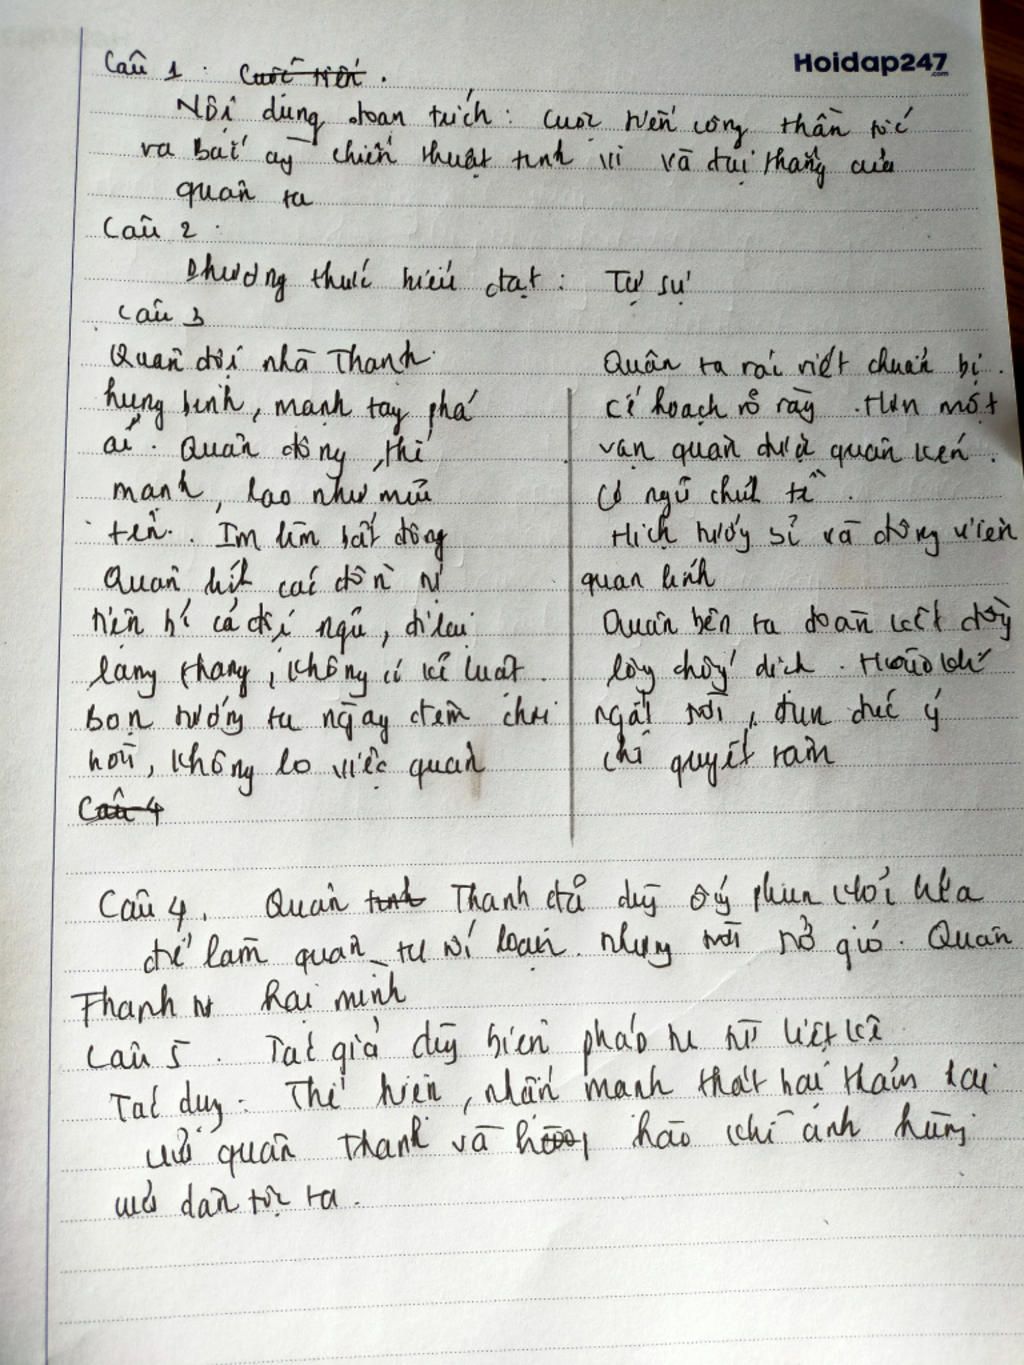 Hoidap247
.com
Câu 1 : Cuộc tiến.
Nội dung đoạn trích: Cuộc tiến công thần tốc
và bất ngờ chiến thuật tinh vi và đại thắng của
quân ta
Câu 2
Phương thức biểu đạt: Tự sự
Câu 3
Quân đội nhà Thanh
hung binh, mạnh tay phá
ải. Quân đông, thế
mạnh, lao như mũi
tên. Im lìm bất động
Quân lính các đồn tự
tiện bỏ cả đội ngũ, đi lại
lang thang, không có kỉ luật.
Bọn tướng tá ngày đêm chơi
bời, không lo việc quân
Quân ta ráo riết chuẩn bị.
Có hoạch rõ ràng. Hơn một
vạn quân
Có ngũ chỉnh tề.
Hịch tướng sĩ và động viên
quân lính
Quân bên ta đoàn kết đồng
lòng chống địch. Hào khí
ngất trời, đun đúc ý
chí quyết tâm
Câu 4
Câu 4. Quân Thanh đã dùng ống phun khói lửa
để làm quân ta rối loạn. nhưng trời trở gió. Quân
Thanh tự hại mình
Câu 5. Tác giả dùng biện pháp tu từ liệt kê
Tác dụng: Thể hiện, nhấn mạnh thất bại thảm hại
của quân Thanh và hào khí anh hùng
của dân tộc ta.